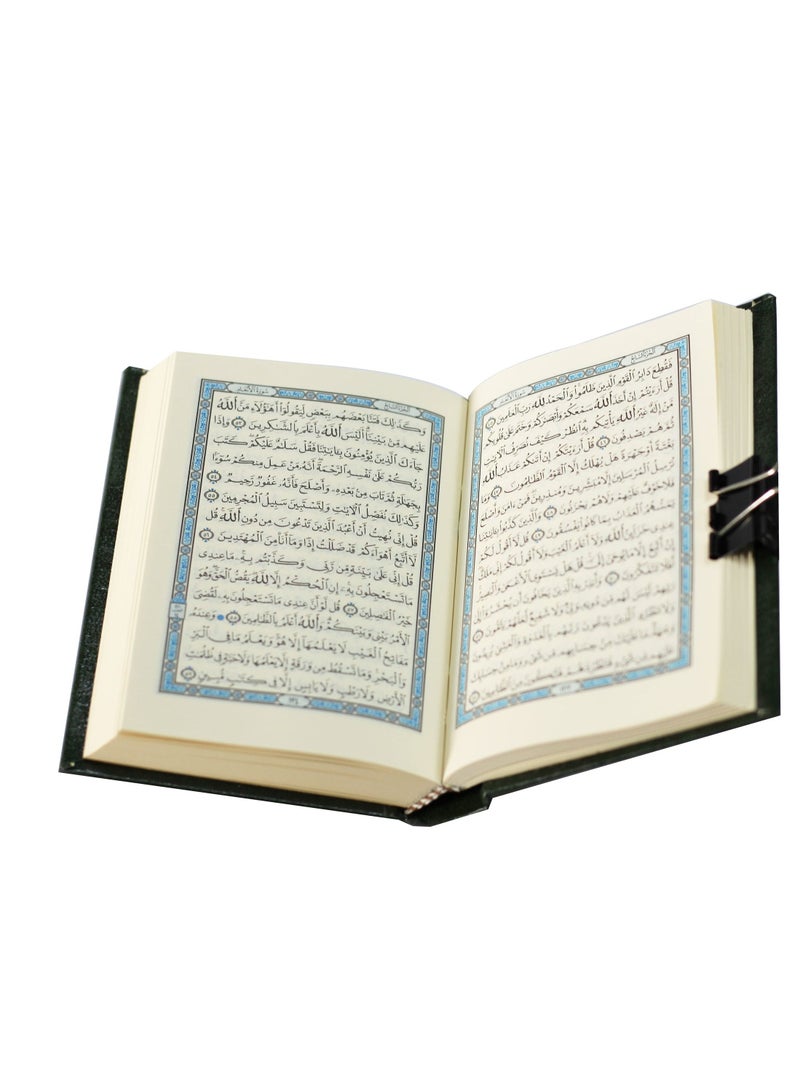 الجزء السابع
سورة الأنعام
فَقُطِعَ دَابِرُ ٱلْقَوْمِ ٱلَّذِينَ ظَلَمُوا۟ وَٱلْحَمْدُ لِلَّهِ رَبِّ ٱلْعَٰلَمِينَ ٤٥
قُلْ أَرَءَيْتُمْ إِنْ أَخَذَ ٱللَّهُ سَمْعَكُمْ وَأَبْصَٰرَكُمْ وَخَتَمَ عَلَىٰ قُلُوبِكُم
مَّنْ إِلَٰهٌ غَيْرُ ٱللَّهِ يَأْتِيكُم بِهِ ٱنظُرْ كَيْفَ نُصَرِّفُ ٱلْءَايَٰتِ
ثُمَّ هُمْ يَصْدِفُونَ ٤٦ قُلْ أَرَءَيْتَكُمْ إِنْ أَتَىٰكُمْ عَذَابُ ٱللَّهِ
بَغْتَةً أَوْ جَهْرَةً هَلْ يُهْلَكُ إِلَّا ٱلْقَوْمُ ٱلظَّٰلِمُونَ ٤٧ وَمَا
نُرْسِلُ ٱلْمُرْسَلِينَ إِلَّا مُبَشِّرِينَ وَمُنذِرِينَ فَمَنْ ءَامَنَ وَأَصْلَحَ
فَلَا خَوْفٌ عَلَيْهِمْ وَلَا هُمْ يَحْزَنُونَ ٤٨ وَٱلَّذِينَ كَذَّبُوا۟ بِـَٔايَٰتِنَا
يَمَسُّهُمُ ٱلْعَذَابُ بِمَا كَانُوا۟ يَفْسُقُونَ ٤٩ قُل لَّآ أَقُولُ لَكُمْ
عِندِى خَزَآئِنُ ٱللَّهِ وَلَآ أَعْلَمُ ٱلْغَيْبَ وَلَآ أَقُولُ لَكُمْ إِنِّى مَلَكٌ
إِنْ أَتَّبِعُ إِلَّا مَا يُوحَىٰٓ إِلَىَّ قُلْ هَلْ يَسْتَوِى ٱلْأَعْمَىٰ وَٱلْبَصِيرُ
أَفَلَا تَتَفَكَّرُونَ ٥٠ وَأَنذِرْ بِهِ ٱلَّذِينَ يَخَافُونَ أَن يُحْشَرُوٓا۟ إِلَىٰ
رَبِّهِمْ لَيْسَ لَهُم مِّن دُونِهِۦ وَلِىٌّ وَلَا شَفِيعٌ لَّعَلَّهُمْ يَتَّقُونَ ٥١
وَلَا تَطْرُدِ ٱلَّذِينَ يَدْعُونَ رَبَّهُم بِٱلْغَدَوٰةِ وَٱلْعَشِىِّ يُرِيدُونَ
وَجْهَهُۥ مَا عَلَيْكَ مِنْ حِسَابِهِم مِّن شَىْءٍ وَمَا مِنْ حِسَابِكَ
عَلَيْهِم مِّن شَىْءٍ فَتَطْرُدَهُمْ فَتَكُونَ مِنَ ٱلظَّٰلِمِينَ ٥٢
١٣٣
الجزء السابع
سورة الأنعام
وَكَذَٰلِكَ فَتَنَّا بَعْضَهُم بِبَعْضٍ لِّيَقُولُوٓا۟ أَهَٰٓؤُلَآءِ مَنَّ ٱللَّهُ
عَلَيْهِم مِّنۢ بَيْنِنَآ أَلَيْسَ ٱللَّهُ بِأَعْلَمَ بِٱلشَّٰكِرِينَ ٥٣ وَإِذَا
جَآءَكَ ٱلَّذِينَ يُؤْمِنُونَ بِـَٔايَٰتِنَا فَقُلْ سَلَٰمٌ عَلَيْكُمْ كَتَبَ
رَبُّكُمْ عَلَىٰ نَفْسِهِ ٱلرَّحْمَةَ أَنَّهُۥ مَنْ عَمِلَ مِنكُمْ سُوٓءًۢا
بِجَهَٰلَةٍ ثُمَّ تَابَ مِنۢ بَعْدِهِۦ وَأَصْلَحَ فَأَنَّهُۥ غَفُورٌ رَّحِيمٌ ٥٤
وَكَذَٰلِكَ نُفَصِّلُ ٱلْءَايَٰتِ وَلِتَسْتَبِينَ سَبِيلُ ٱلْمُجْرِمِينَ ٥٥
قُلْ إِنِّى نُهِيتُ أَنْ أَعْبُدَ ٱلَّذِينَ تَدْعُونَ مِن دُونِ ٱللَّهِ قُل
لَّآ أَتَّبِعُ أَهْوَآءَكُمْ قَدْ ضَلَلْتُ إِذًا وَمَآ أَنَا۠ مِنَ ٱلْمُهْتَدِينَ ٥٦
قُلْ إِنِّى عَلَىٰ بَيِّنَةٍ مِّن رَّبِّى وَكَذَّبْتُم بِهِۦ مَا عِندِى
مَا تَسْتَعْجِلُونَ بِهِۦٓ إِنِ ٱلْحُكْمُ إِلَّا لِلَّهِ يَقُصُّ ٱلْحَقَّ وَهُوَ
خَيْرُ ٱلْفَٰصِلِينَ ٥٧ قُل لَّوْ أَنَّ عِندِى مَا تَسْتَعْجِلُونَ بِهِۦ لَقُضِىَ
ٱلْأَمْرُ بَيْنِى وَبَيْنَكُمْ وَٱللَّهُ أَعْلَمُ بِٱلظَّٰلِمِينَ ٥٨ وَعِندَهُۥ
مَفَاتِحُ ٱلْغَيْبِ لَا يَعْلَمُهَآ إِلَّا هُوَ وَيَعْلَمُ مَا فِى ٱلْبَرِّ
وَٱلْبَحْرِ وَمَا تَسْقُطُ مِن وَرَقَةٍ إِلَّا يَعْلَمُهَا وَلَا حَبَّةٍ فِى ظُلُمَٰتِ
ٱلْأَرْضِ وَلَا رَطْبٍ وَلَا يَابِسٍ إِلَّا فِى كِتَٰبٍ مُّبِينٍ ٥٩
١٣٤